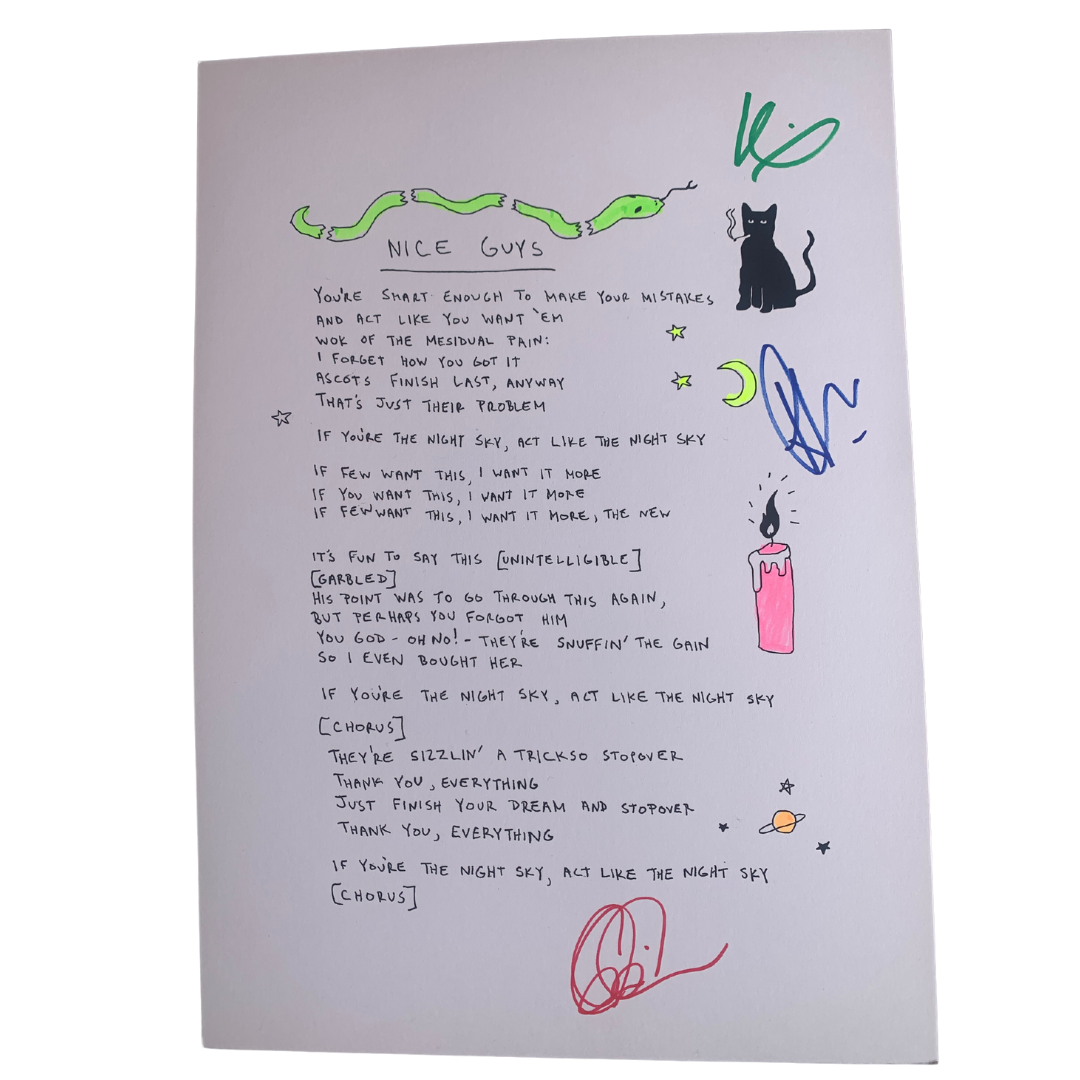 NICE GUYS
YOU'RE SMART ENOUGH TO MAKE YOUR MISTAKES
AND ACT LIKE YOU WANT 'EM
WOK OF THE MESIDUAL PAIN:
I FORGET HOW YOU GOT IT
ASCOTS FINISH LAST, ANYWAY
THAT'S JUST THEIR PROBLEM
IF YOU'RE THE NIGHT SKY, ACT LIKE THE NIGHT SKY
IF FEW WANT THIS, I WANT IT MORE
IF YOU WANT THIS, I WANT IT MORE
IF FEW WANT THIS, I WANT IT MORE, THE NEW
IT'S FUN TO SAY THIS [UNINTELLIGIBLE]
[GARBLED]
HIS POINT WAS TO GO THROUGH THIS AGAIN,
BUT PERHAPS YOU FORGOT HIM
YOU GOD - OH NO! - THEY'RE SNUFFIN' THE GAIN
SO I EVEN BOUGHT HER
IF YOU'RE THE NIGHT SKY, ACT LIKE THE NIGHT SKY
[CHORUS]
THEY'RE SIZZLIN' A TRICKSO STOPOVER
THANK YOU, EVERYTHING
JUST FINISH YOUR DREAM AND STOPOVER
THANK YOU, EVERYTHING
IF YOU'RE THE NIGHT SKY, ACT LIKE THE NIGHT SKY
[CHORUS]